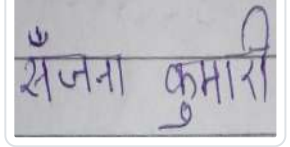 सँजना कुमारी